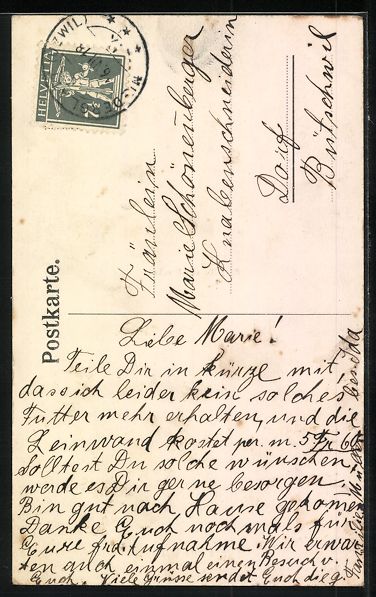 HELVETIA
Postkarte.
Fräulein
Marie Schönenberger
Knabenschneiderin
Dorf
Bütschwil
Liebe Marie!
Teile Dir in kürze mit,
dass ich leider kein solches
Futter mehr erhalten, und die
Leinwand kostet per. m. 5 Fr 60
solltest Du solche wünschen,
werde es Dir gerne besorgen.
Bin gut nach Hause gekommen
Danke Euch nochmals für
Eure frdl. Aufnahme. Wir erwar
ten auch einmal einen Besuch v.
Euch. Viele Grüsse sendet Euch die g.